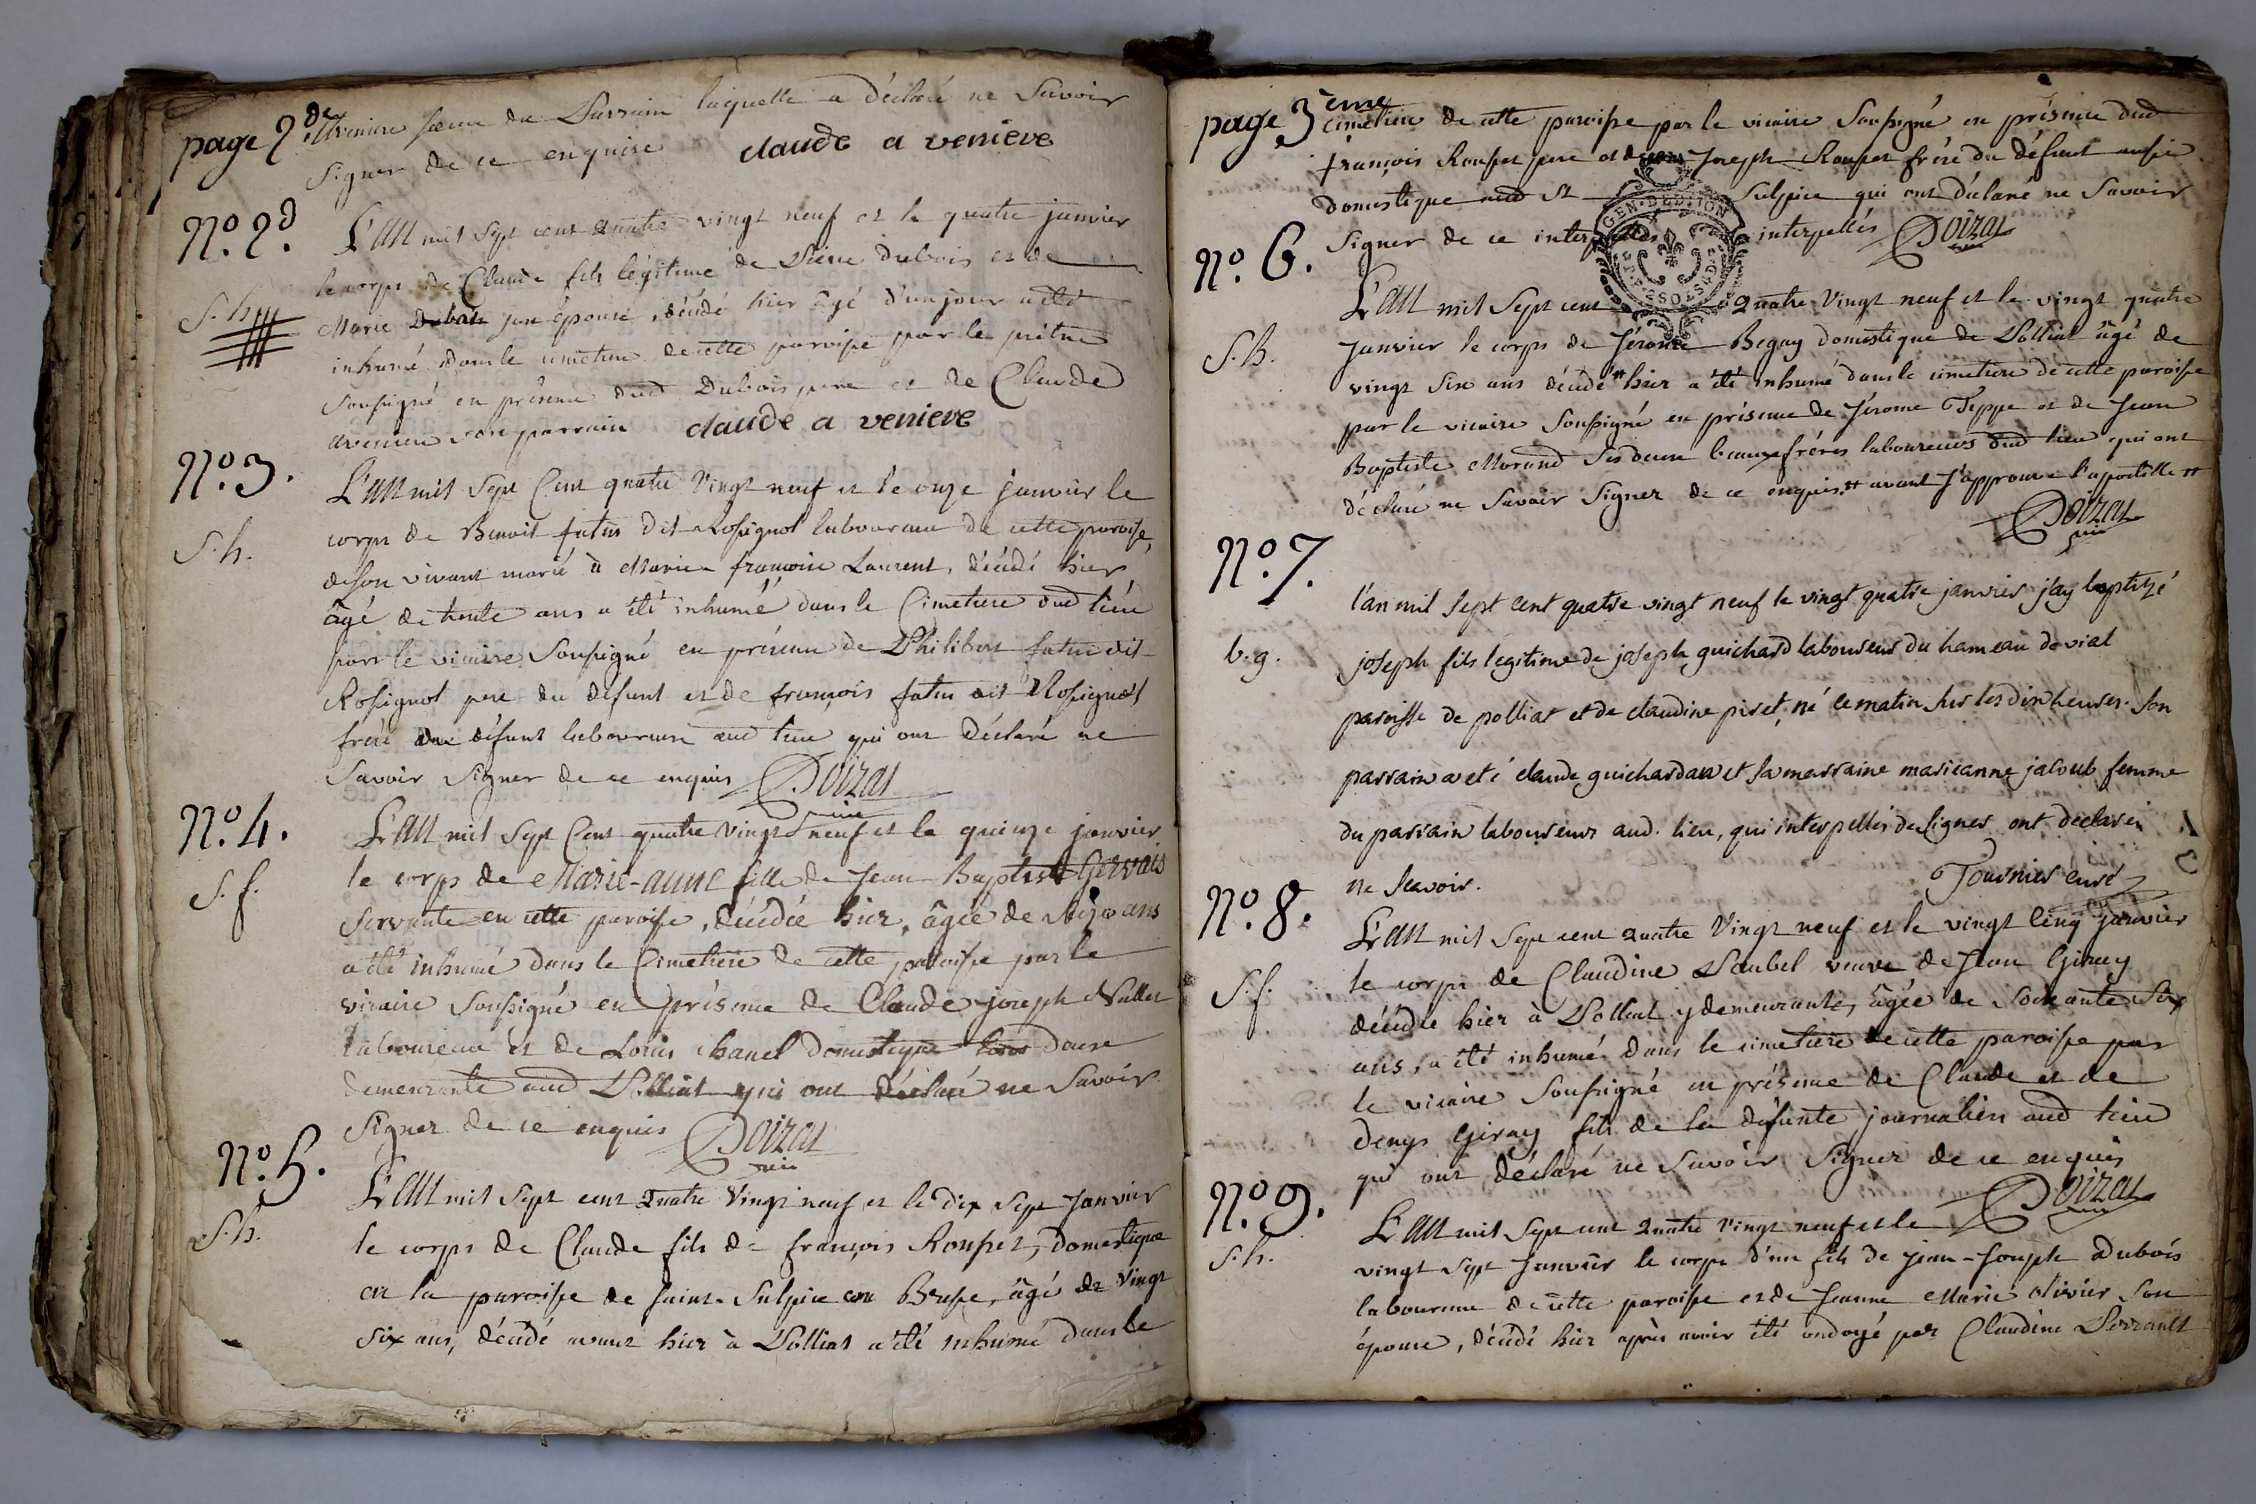 page 2.de
Aveniere sœur du Parrain laquelle a déclaré ne Savoir
Signer de ce enquise claude a venieve
No. 2d.
L'an mil Sept cent quatre vingt neuf et le quatre janvier
le corps de Claude fils légitime de Pierre Dubois et de
S. h.
Marie Dubois son épouse, décédé hier âgé d'un jour a été
inhumé dans le cimetiere de cette paroisse par le prêtre
Soussigné en présence dud Dubois pere et de Claude
aveniere son parrain claude a venieve
No. 3.
L'an mil Sept Cent quatre Vingt neuf et le onze janvier le
corps de Benoit futin dit Rossignol laboureur de cette paroisse,
S. h.
de son vivant marié à Marie françoise Laurent, décédé hier
âgé de trente ans a été inhumé dans le Cimetiere dud lieu
par le vicaire Soussigné en présence de Philibert futin dit
Rossignol pere du défunt et de françois futin dit Rossignol
frère du défunt laboureurs aud lieu qui ont déclaré ne
Savoir Signer de ce enquis Doizat vic
No. 4.
L'an mil Sept Cent quatre Vingt neuf et le quinze janvier
le corps de Marie-anne fille de Jean Baptiste Gervais
S. f.
Servante en cette paroisse, décédée hier, âgée de ans
a été inhumé dans le Cimetiere de cette paroisse par le
vicaire Soussigné en présence de Claude joseph Vallet
Laboureur et de Louis chanel domestique tous deux
demeurants aud Polliat qui ont déclaré ne Savoir
Signer de ce enquis Doizat vic
No. 5.
L'an mil Sept cent Quatre Vingt neuf et le dix Sept Janvier
S. h.
le corps de Claude fils de françois Rousset, domestique
en la paroisse de Saint-Sulpice en Bresse, âgé de Vingt
Six ans, décédé avant hier à Polliat a été inhumé dans le
page 3eme
cimetiere de cette paroisse par le vicaire Soussigné en présence dud
françois Rousset pere et de Joseph Rousset frère du défunt aussi
domestique aud St Sulpice qui ont déclaré ne Savoir
Signer de ce interpellés interpellés Doizat vic
GEN. D E DIJON
No. 6.
L'an mil Sept cent Quatre Vingt neuf et le vingt quatre
S. h.
Janvier le corps de Jérome Begay domestique de Polliat âgé de
vingt Six ans décédé hier a été inhumé dans le cimetiere de cette paroisse
par le vicaire Soussigné en présence de Jérome Teppe et de Jean
Baptiste Morand Ses deux beauxfréres laboureurs dud lieu qui ont
déclaré ne Savoir Signer de ce enquis avant J'approuve l'apostille
Doizat vic
No. 7.
l'an mil sept cent quatre vingt neuf le vingt quatre janvier j'ay baptizé
b. g.
joseph fils legitime de joseph guichard laboureur du hameau de vial
paroisse de polliat et de claudine piret, né le matin sur les dix heures. son
parrain a eté claude guichardan et sa marraine marieanne jacoub femme
du parrain laboureurs aud. lieu, qui interpellés de signer ont declaré
ne scavoir. Tournier curé
No. 8.
L'an mil Sept cent Quatre Vingt neuf et le vingt Cinq janvier
S. f.
le corps de Claudine Paubel veuve de Jean Giray
décédée hier à Polliat y demeurante, âgée de Soixante Six
ans, a été inhumé dans le cimetiere de cette paroisse par
le vicaire Soussigné en présence de Claude et de
Denys Giray fils de la défunte, journaliers aud lieu
qui ont déclaré ne Savoir Signer de ce enquis
Doizat vic
No. 9.
L'an mil Sept cent Quatre Vingt neuf et le
S. h.
vingt Sept Janvier le corps d'un fils de Jean-Joseph Dubois
laboureur de cette paroisse et de Jeanne Marie olivier Son
épouse, décédé hier après avoir été ondoyé par Claudine Perrault